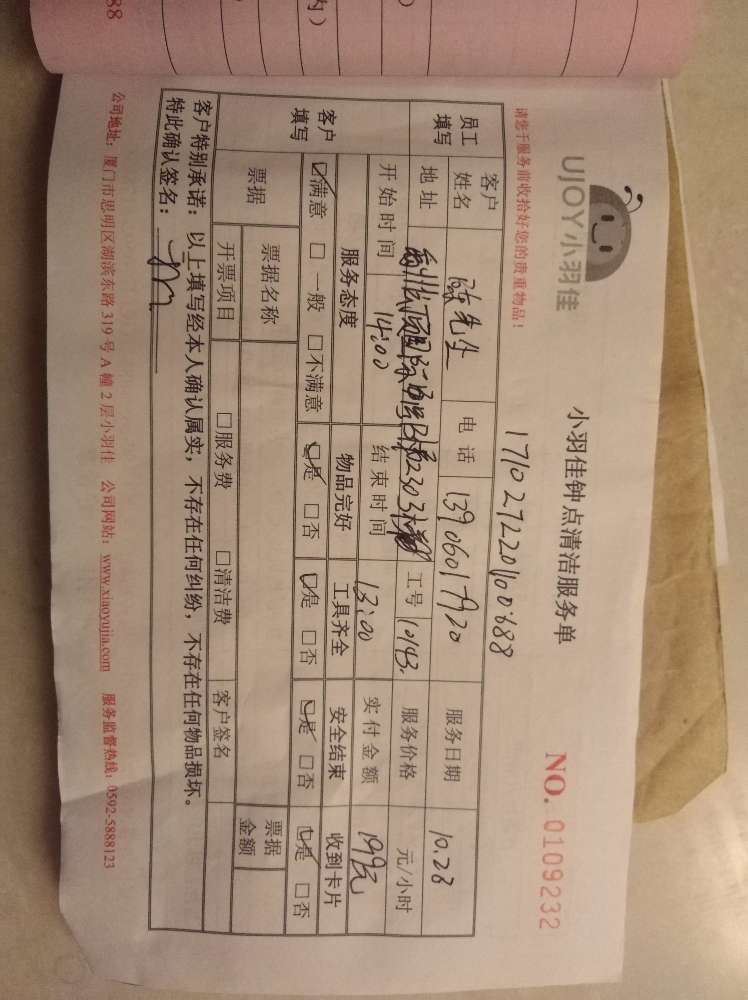 88
内)
UJOY小羽佳
小羽佳钟点清洁服务单
NO. 0109232
请您于服务前收拾好您的贵重物品!
171027220100688
员工填写 客户姓名 陈先生 电话 13906017920 服务日期 10.28
地址 2303 工号 10143. 服务价格 元/小时
开始时间 14:00 结束时间 13:00 实付金额 199元
客户填写 服务态度 物品完好 工具齐全 安全结束 收到卡片
☑满意 □一般 □不满意 ☑是 □否 ☑是 □否 ☑是 □否 ☑是 □否
票据 票据名称 票据金额
开票项目 □服务费 □清洁费 客户签名
客户特别承诺:以上填写经本人确认属实,不存在任何纠纷,不存在任何物品损坏。
特此确认签名:
公司地址:厦门市思明区湖滨东路319号A幢2层小羽佳 公司网站:www.xiaoyujia.com 服务监督热线:0592-5888123